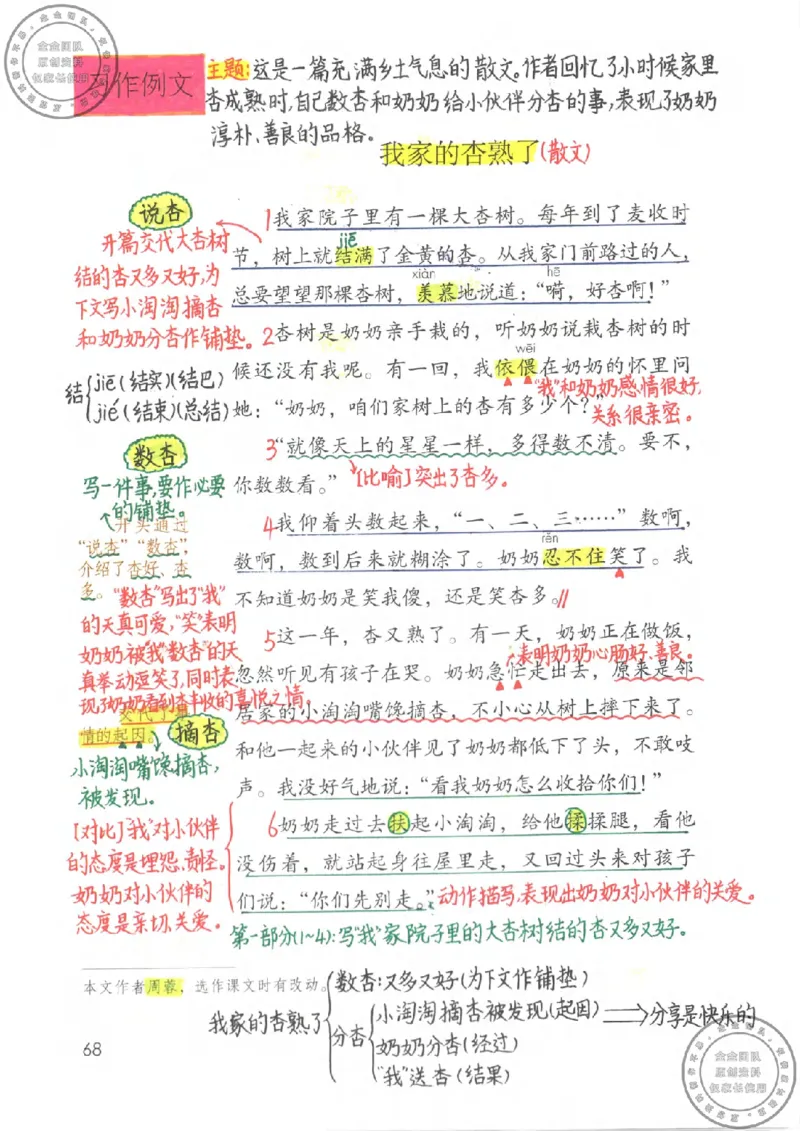 金金团队
原创资料
仅家长使用
习作例文
主题:这是一篇充满乡土气息的散文。作者回忆了小时候家里
杏成熟时,自己数杏和奶奶给小伙伴分杏的事,表现了奶奶
淳朴、善良的品格。
我家的杏熟了(散文)
说杏
开篇交代大杏树
结的杏又多又好,为
下文写小淘淘摘杏
和奶奶分杏作铺垫。
1我家院子里有一棵大杏树。每年到了麦收时
jiē
节,树上就结满了金黄的杏。从我家门前路过的人,
xiàn hē
总要望望那棵杏树,羡慕地说道:“嗬,好杏啊!”
2杏树是奶奶亲手栽的,听奶奶说栽杏树的时
wēi
候还没有我呢。有一回,我依偎在奶奶的怀里问
“我”和奶奶感情很好,
关系很亲密。
她:“奶奶,咱们家树上的杏有多少个?”
结 jiē(结实)(结巴)
jié(结束)(总结)
数杏
写一件事,要作必要
的铺垫。
3“就像天上的星星一样,多得数不清。要不,
你数数看。”
[比喻]突出了杏多。
开头通过
“说杏”“数杏”,
介绍了杏好、杏
多。
4我仰着头数起来,“一、二、三……”数啊,
rěn
数啊,数到后来就糊涂了。奶奶忍不住笑了。我
不知道奶奶是笑我傻,还是笑杏多。//
“数杏”写出了“我”
的天真可爱,“笑”表明
奶奶被“我”数杏的天
真举动逗笑了,同时表
现了奶奶看到杏丰收的喜悦之情。
5这一年,杏又熟了。有一天,奶奶正在做饭,
表明奶奶心肠好、善良。
忽然听见有孩子在哭。奶奶急忙走出去,原来是邻
居家的小淘淘嘴馋摘杏,不小心从树上摔下来了。
和他一起来的小伙伴见了奶奶都低下了头,不敢吱
声。我没好气地说:“看我奶奶怎么收拾你们!”
交代了事
情的起因。
摘杏
小淘淘嘴馋摘杏,
被发现。
[对比]“我”对小伙伴
的态度是埋怨、责怪。
奶奶对小伙伴的
态度是亲切、关爱。
6奶奶走过去扶起小淘淘,给他揉揉腿,看他
没伤着,就站起身往屋里走,又回过头来对孩子
们说:“你们先别走。”
动作描写,表现出奶奶对小伙伴的关爱。
第一部分(1~4):写“我”家院子里的大杏树结的杏又多又好。
本文作者周蓉,选作课文时有改动。
我家的杏熟了
数杏:又多又好(为下文作铺垫)
分杏
小淘淘摘杏被发现(起因)
奶奶分杏(经过)
“我”送杏(结果)
分享是快乐的
68
金金团队
原创资料
仅家长使用